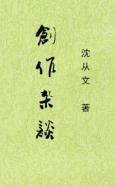 創作杂談
沈从文 著